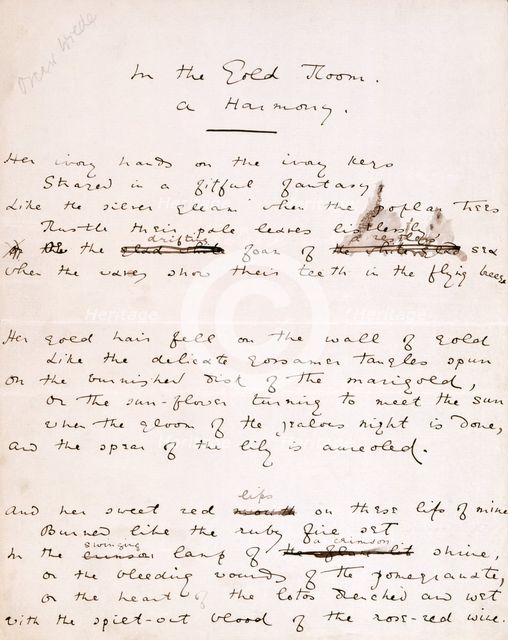 Oscar Wilde
In the Gold Room.
A Harmony.
Her ivory hands on the ivory keys
Strayed in a fitful fantasy
Like the silver gleam when the poplar trees
Rustle their pale leaves listlessly
drifting a restless
Or the foam of sea
When the waves show their teeth in the flying breeze
Her gold hair fell on the wall of gold
Like the delicate gossamer tangles spun
On the burnished disk of the marigold,
Or the sun-flower turning to meet the sun
When the gloom of the jealous night is done,
And the spear of the lily is aureoled.
lips
And her sweet red mouth on these lips of mine
Burned like the ruby fire set
swinging crimson
In the crimson lamp of shrine,
Or the bleeding wounds of the pomegranate,
Or the heart of the lotos drenched and wet
With the spilt-out blood of the rose-red wine.
Heritage
Heritage
Heritage